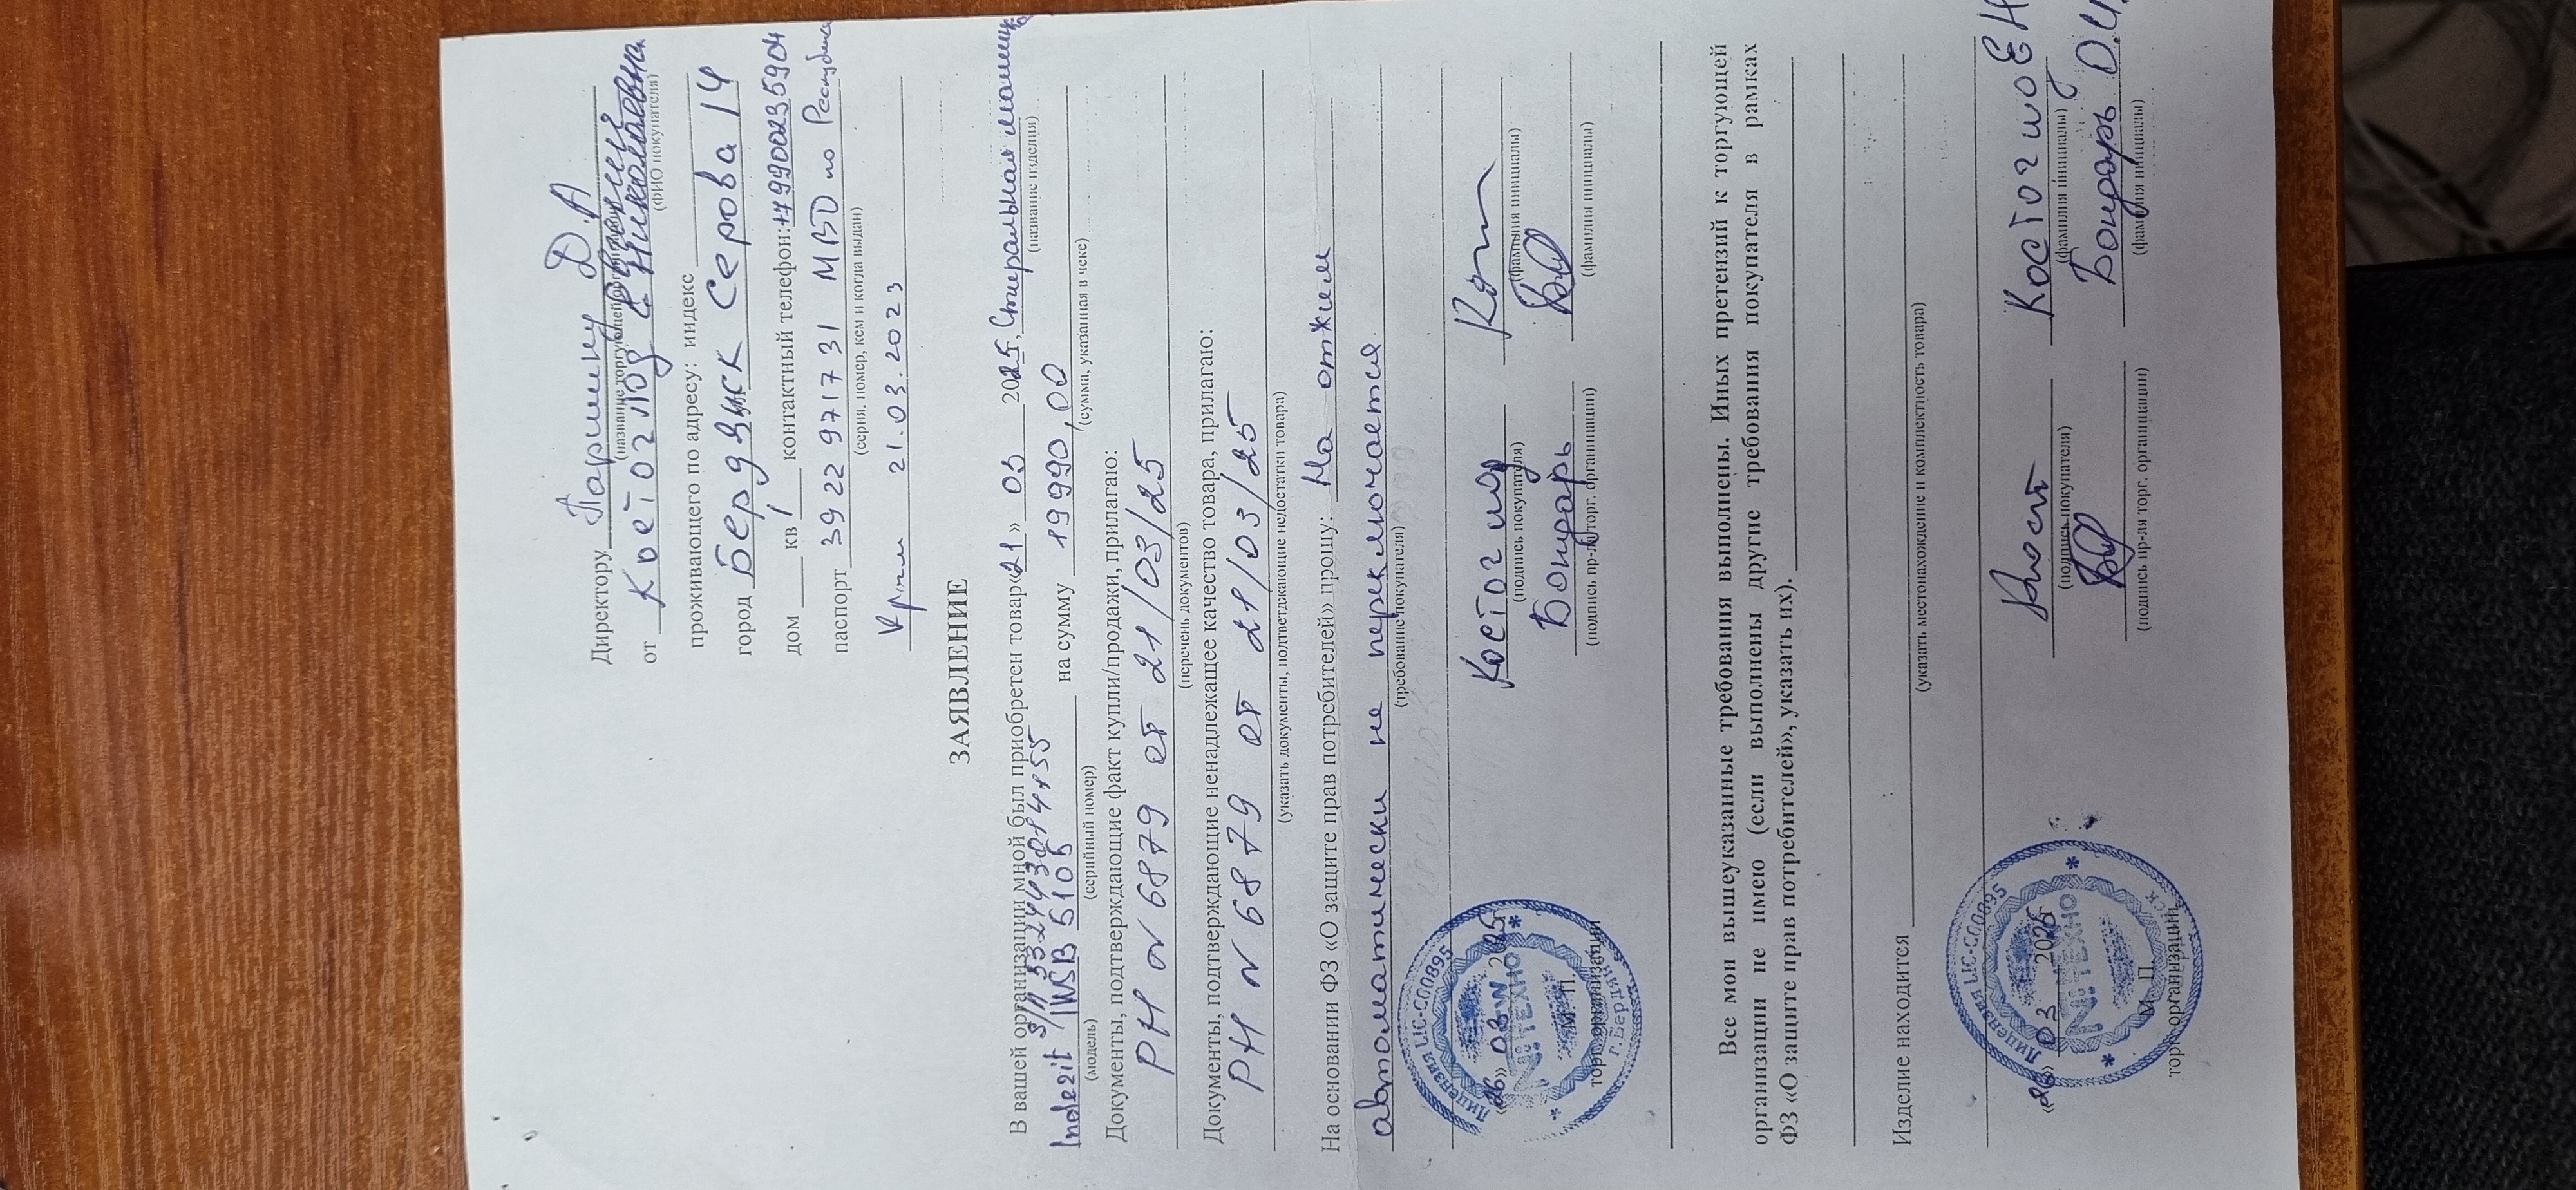 Директору Паршину Д.А
(название торгующей организации)
от Костогло Евгении Николаевна
(ФИО покупателя)
проживающего по адресу: индекс
город Бердянск Серова 14
дом кв 1 контактный телефон: +79900235904
паспорт 3922 971731 МВД по Республике
(серия, номер, кем и когда выдан)
Крым 21.03.2023
ЗАЯВЛЕНИЕ
В вашей организации мной был приобретен товар «21» 03 2025, Стиральная машинка
(название изделия)
Indezit IWSB 5105 на сумму 19990,00
(модель) (серийный номер) (сумма, указанная в чеке)
Документы, подтверждающие факт купли/продажи, прилагаю:
РН N 6879 от 21/03/25
(перечень документов)
Документы, подтверждающие ненадлежащее качество товара, прилагаю:
РН N 6879 от 21/03/25
(указать документы, подтверждающие недостатки товара)
На основании ФЗ «О защите прав потребителей» прошу: На отжим
автоматически не переключается
(требование покупателя)
(подпись покупателя) (фамилия инициалы)
Бондарь
(подпись пр-ля торг. организации) (фамилия инициалы)
«26» 03 2025
М. П.
торг. организации
Лицензия LIC-C00895
№1 ТЕХНО
г. Бердянск
Все мои вышеуказанные требования выполнены. Иных претензий к торгующей
организации не имею (если выполнены другие требования покупателя в рамках
ФЗ «О защите прав потребителей», указать их).
Изделие находится
(указать местонахождение и комплектность товара)
«26» 03 2025
(подпись покупателя) (фамилия инициалы)
Бондарь О.И.
(подпись пр-ля торг. организации) (фамилия инициалы)
М. П.
торг. организации
Лицензия LIC-C00895
№1 ТЕХНО